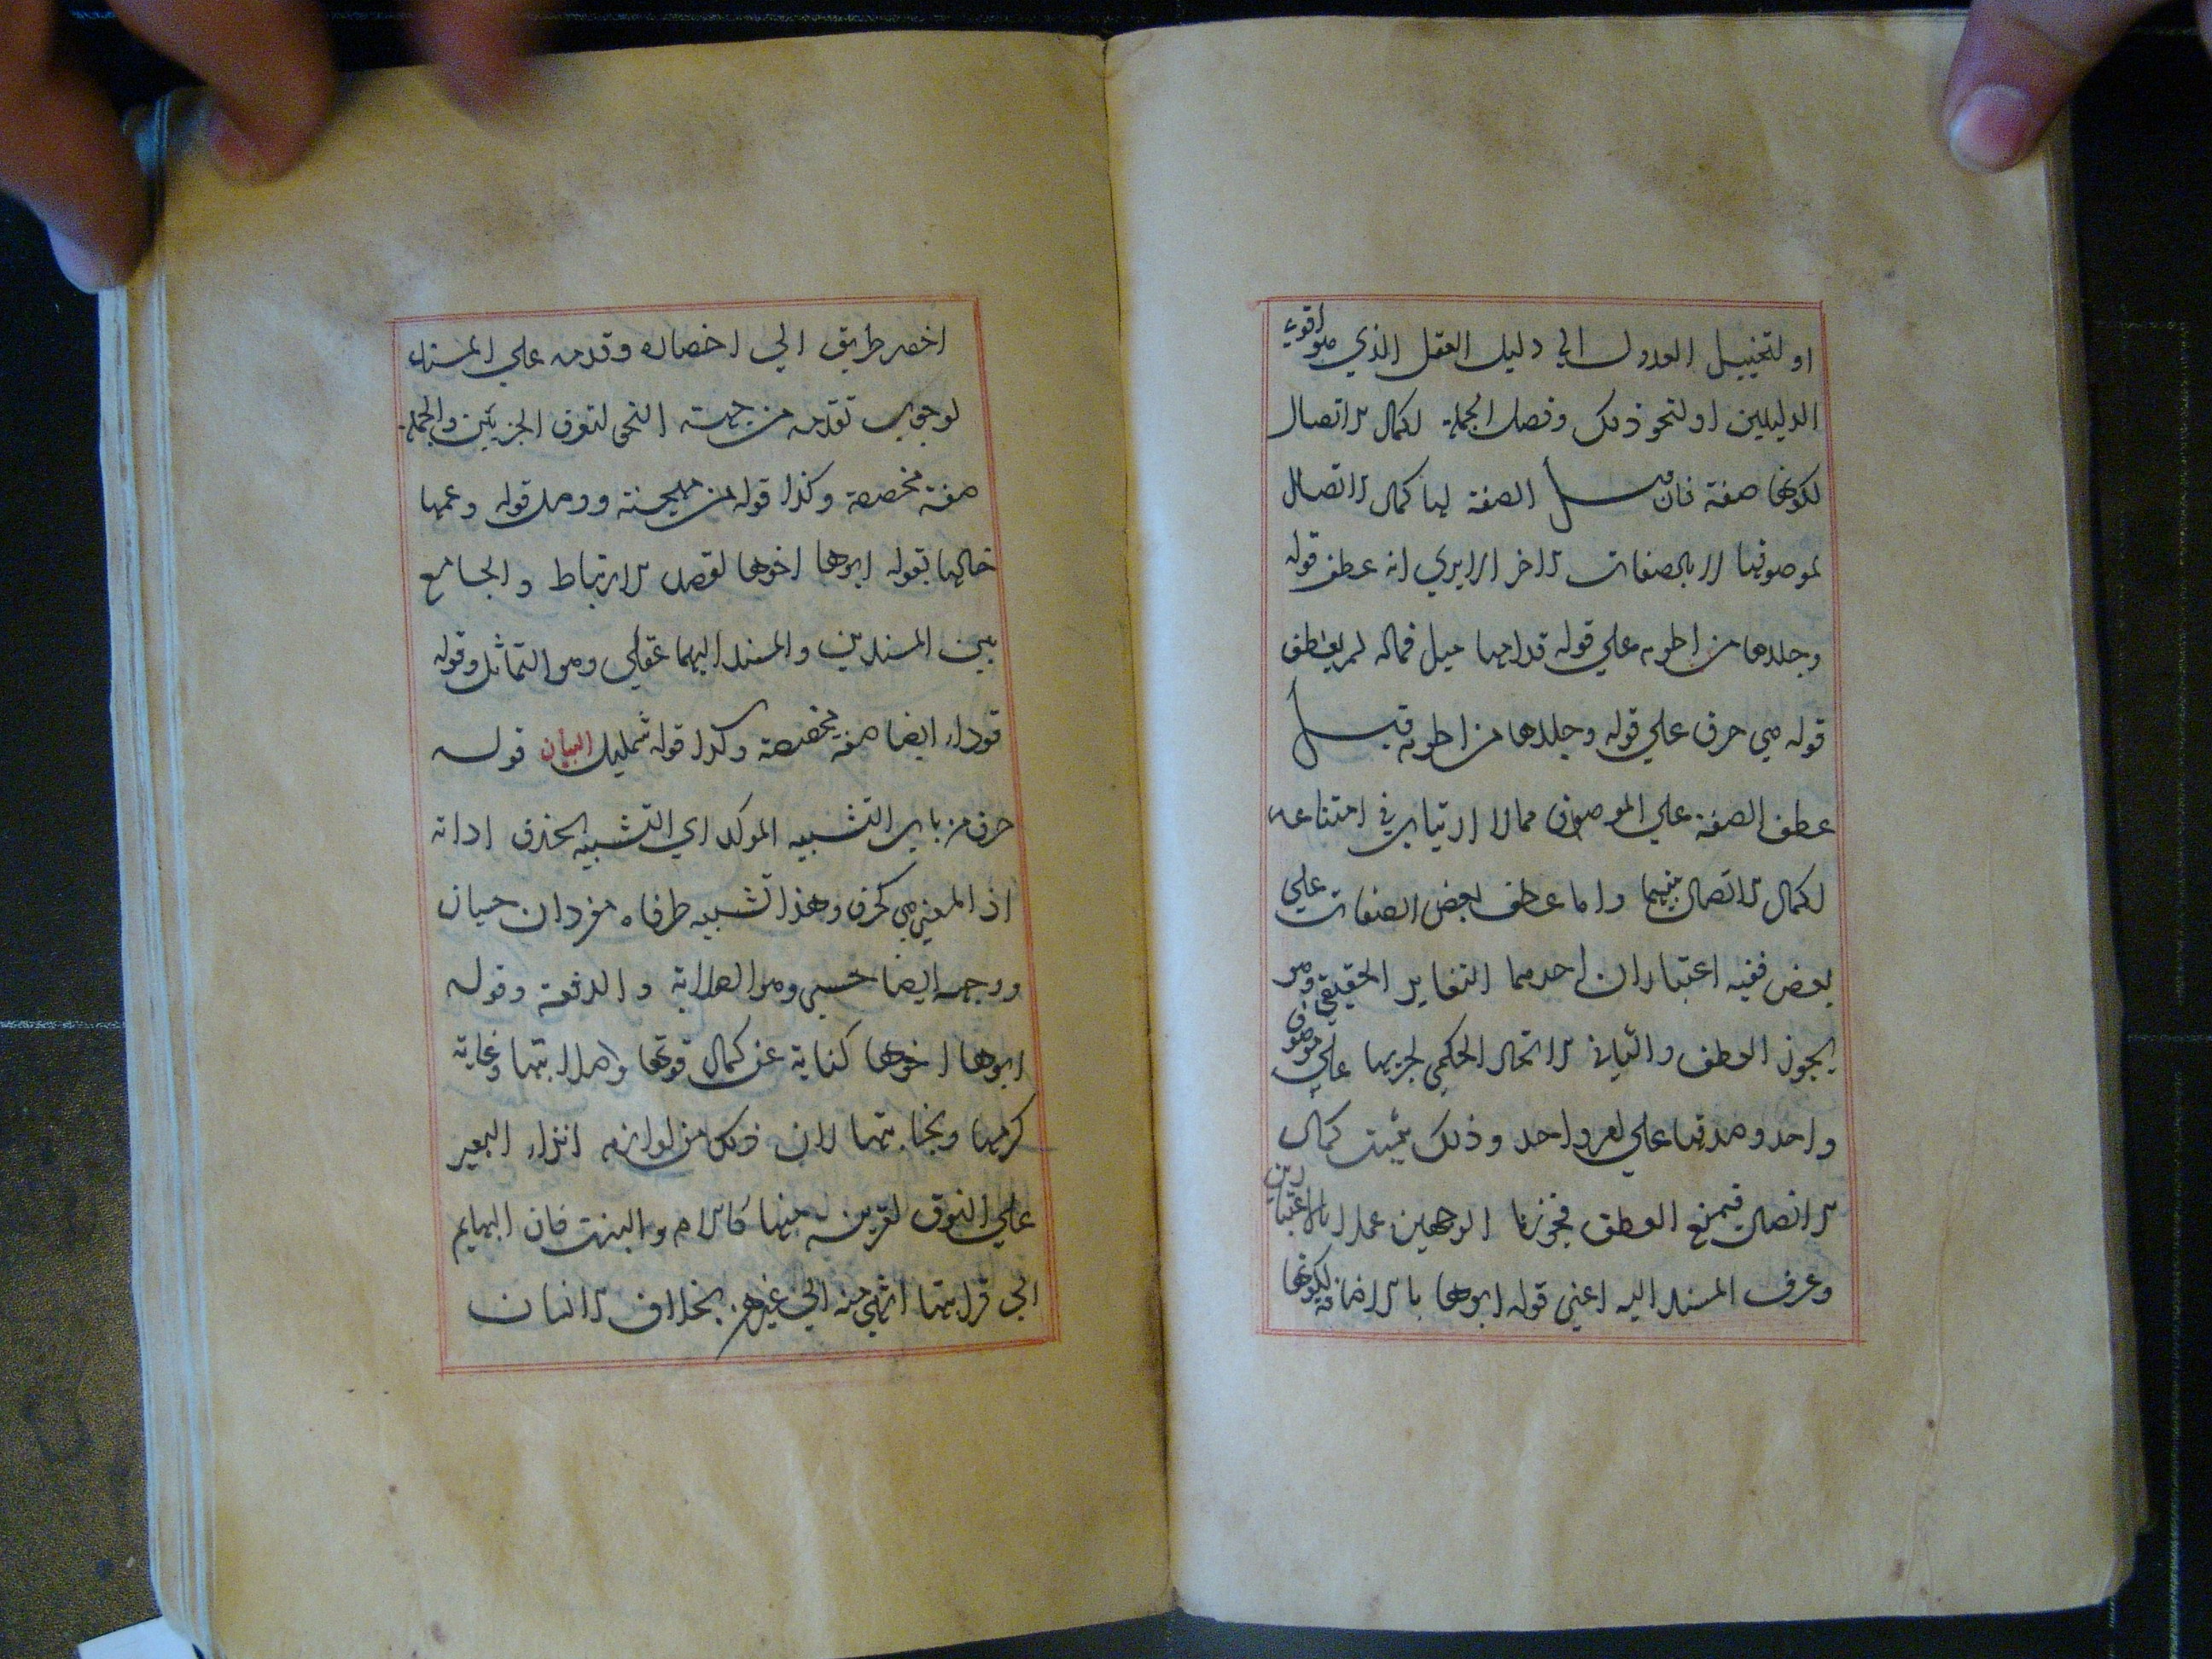 او لتخييل العدول الي دليل العقل الذي هو اقوي
الدليلين او لنحو ذلك وفصل الجملة لكمال الاتصال
لكونها صفة فان قيل الصفة لها كمال الاتصال
لموصوفها لا بالصفات الاخر الا يري انه عطف قوله
وجلدها من اطوم علي قوله قدامها ميل فماله لم يعطف
قوله هي حرف علي قوله وجلدها من اطوم قيل
عطف الصفة علي الموصوف مما لا ارتياب في امتناعه
لكمال الاتصال بينهما واما عطف بعض الصفات علي
بعض ففيه اعتباران احدهما التغاير الحقيقي وهو
يجوز العطف والثاني الاتحاد الحكمي لجريها علي موصوف
واحد وصدقها علي واحد وذلك يثبت كمال
الاتصال فيمنع العطف فجوزنا الوجهين عملا بالاعتبارين
وعرف المسند اليه اعني قوله ابوها بالاضافة لكونها
اخصر طريق الي احضاره وقدمه علي المسند
لوجوب تقدمه من جهة النحو لتعرف الجزئين والجملة
صفة مخصصة وكذا قوله من مهجنة ووصل قوله وعمها
خالها بقوله ابوها اخوها لقصد الارتباط والجامع
بين المسندين والمسند اليهما عقلي وهو التماثل وقوله
قوداء ايضا صفة مخصصة وكذا قوله شمليل البيان قوله
حرف من باب التشبيه الموكد اي التشبيه الحذف اداته
اذ المعني هي كحرف وهذا تشبيه طرفاه مفردان حسيان
ووجهه ايضا حسي وهو الصلابة والدقة وقوله
ابوها اخوها كناية عن كمال قوتها وصلابتها وغاية
كرمها ونجابتها لان ذلك من لوازم انزاء البعير
علي النوق لقريبة منها كالام والبنت فان البهايم
الي قرابتها اشهي منه الي غيرهن بخلاف الانسان